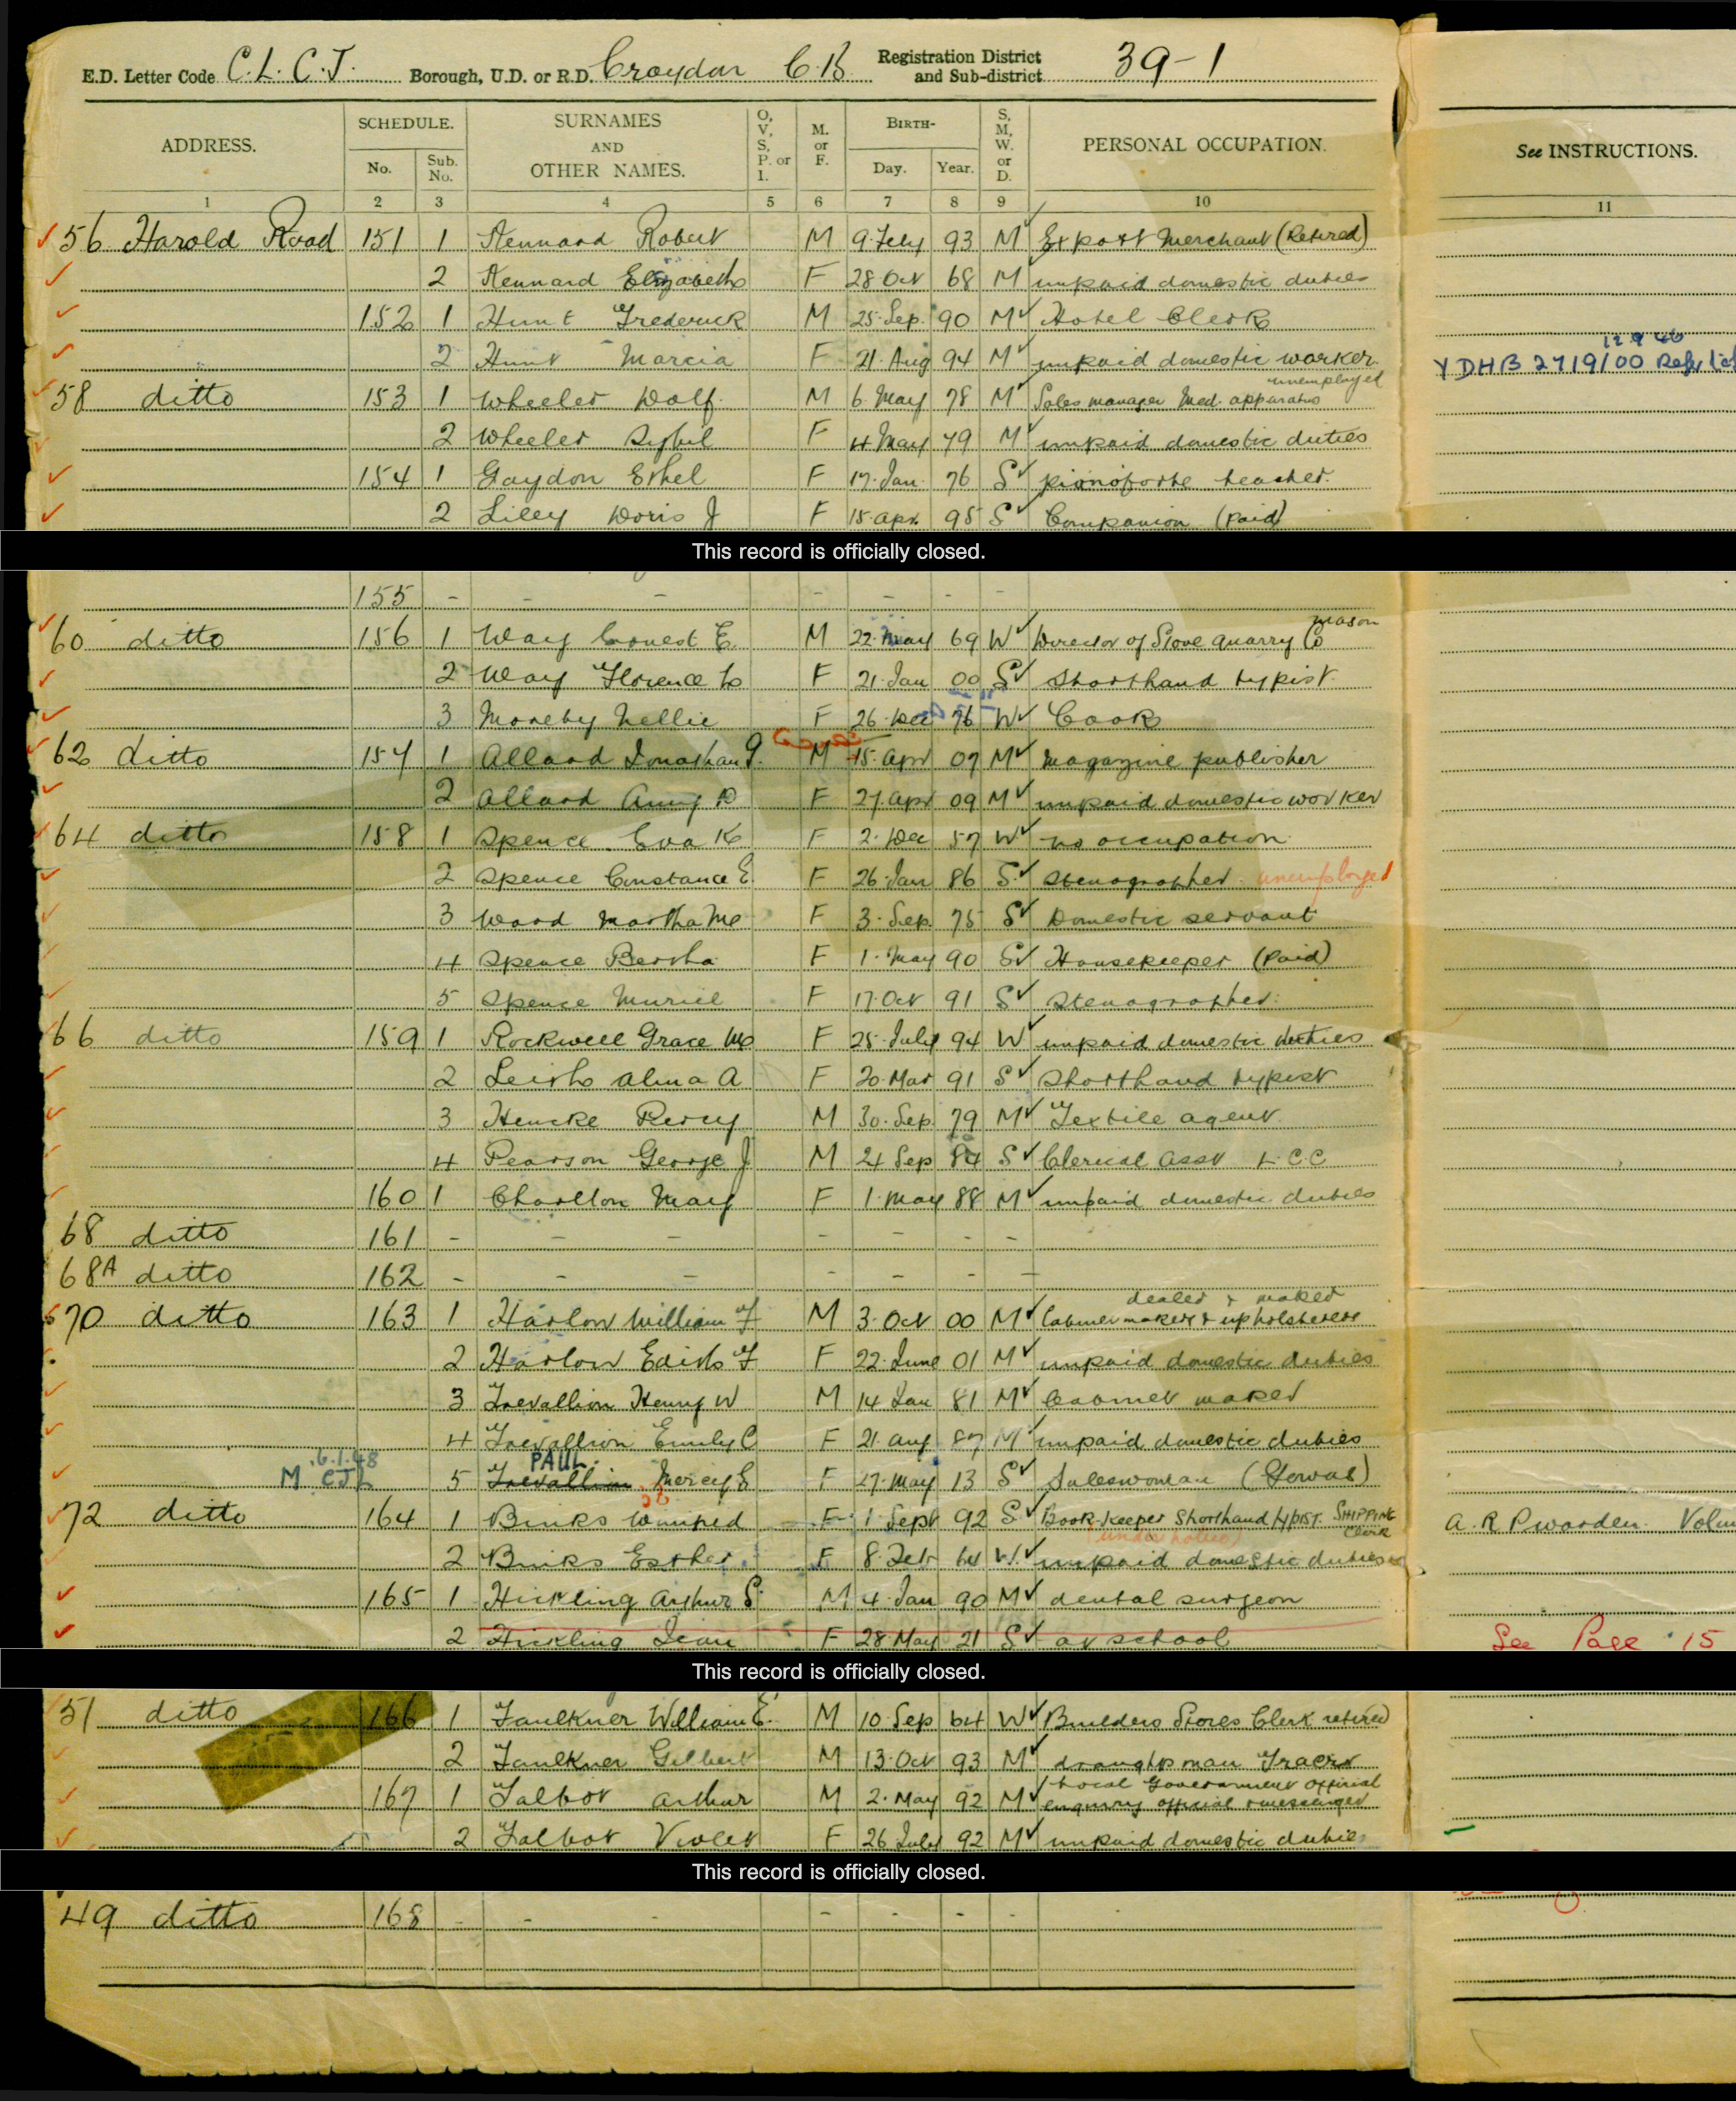 E.D. Letter Code C.L.C.J. Borough, U.D. or R.D. Croydon C.B. Registration District and Sub-district 39-1
ADDRESS. SCHEDULE. No. Sub. No. SURNAMES AND OTHER NAMES. O, V, S, P. or I. M. or F. BIRTH- Day. Year. S, M, W. or D. PERSONAL OCCUPATION. See INSTRUCTIONS.
1 2 3 4 5 6 7 8 9 10 11
56 Harold Road 151 1 Kennard Robert M 9 Feby 93 M Export Merchant (Retired)
2 Kennard Elizabeth F 28 Oct 68 M unpaid domestic duties
152 1 Hunt Frederick M 25 Sep. 90 M Hotel Clerk
2 Hunt Marcia F 21 Aug 94 M unpaid domestic worker YDHB 2719/00
58 ditto 153 1 Wheeler Wolf M 6 May 78 M Sales manager Med. apparatus unemployed
2 Wheeler Sybil F 4 May 79 M unpaid domestic duties
154 1 Gaydon Ethel F 17 Jan 76 S pianoforte teacher
2 Lilley Doris J F 15 apr. 95 S Companion (paid)
This record is officially closed.
155 - - - - - - -
60 ditto 156 1 Way Ernest E. M 22 May 69 W Director of Stone quarry Co mason
2 Way Florence L F 21 Jan 00 S Shorthand typist
3 Moreby Nellie F 26 Dec 76 W Cook
62 ditto 157 1 Allard Jonathan G. M 15 apr 07 M Magazine publisher
2 Allard Amy D F 27 apr 09 M unpaid domestic worker
64 ditto 158 1 Spence Eva K F 2 Dec 57 W no occupation
2 Spence Constance E. F 26 Jan 86 S Stenographer unemployed
3 Ward Martha M F 3 Sep. 75 S Domestic servant
4 Spence Bertha F 1 May 90 S Housekeeper (Paid)
5 Spence Muriel F 17 Oct 91 S Stenographer
66 ditto 159 1 Rockwell Grace M F 25 July 94 W unpaid domestic duties
2 Leish Alma A F 20 Mar 91 S Shorthand typist
3 Hencke Percy M 30 Sep 79 M Textile agent
4 Pearson George J M 21 Sep 84 S Clerical Asst L.C.C
160 1 Charlton May F 1 May 88 M unpaid domestic duties
68 ditto 161 - - - - - - -
68A ditto 162 - - - - - - -
70 ditto 163 1 Harlow William F M 3 Oct 00 M Cabinet makers & upholsterers dealer & maker
2 Harlow Edith F F 22 June 01 M unpaid domestic duties
3 Trevallion Henry W M 14 Jan 81 M Cabinet maker
4 Trevallion Emily C F 21 aug 87 M unpaid domestic duties
6.1.48 PAUL
5 Trevallion Mercy E F 27 May 13 S Saleswoman
72 ditto 164 1 Binks Winifred F 1 Sept 92 S Book-Keeper Shorthand typist SHIPPING Clerk A.R.P warden
2 Binks Esther F 8 Feb 64 W unpaid domestic duties
165 1 Hickling Arthur S. M 4 Jan 90 M dental surgeon
2 Hickling Jean F 28 May 21 S at school See Page 15
This record is officially closed.
51 ditto 166 1 Faulkner William E. M 10 Sep 64 W Builders Stores Clerk retired
2 Faulkner Gilbert M 13 Oct 93 M draughtsman Tracer
167 1 Talbot Arthur M 2 May 92 M Local Government official enquiry official messenger
2 Talbot Violet F 26 July 92 M unpaid domestic duties
This record is officially closed.
49 ditto 168 - - - - - - -